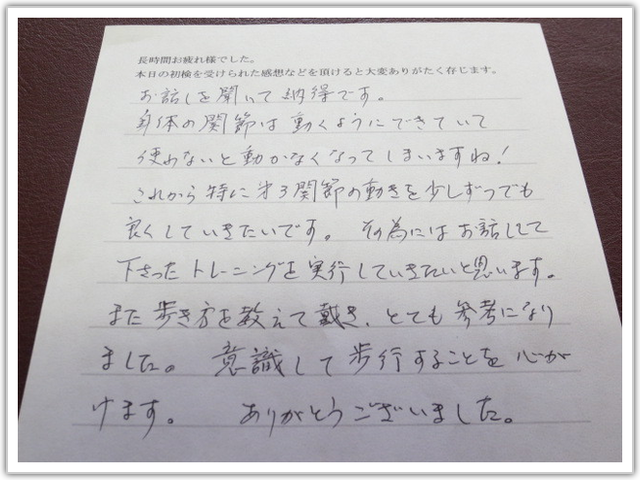 長時間お疲れ様でした。
本日の初検を受けられた感想などを頂けると大変ありがたく存じます。
お話しを聞いて納得です。
身体の関節は動くようにできていて
使わないと動かなくなってしまいますね!
これから特に 関節の動きを少しずつでも
良くしていきたいです。 その為にはお話しして
下さった トレーニングを実行していきたいと思います。
また歩き方を教えて戴き、とても参考になり
ました。 意識して歩行することを心が
けます。 ありがとうございました。